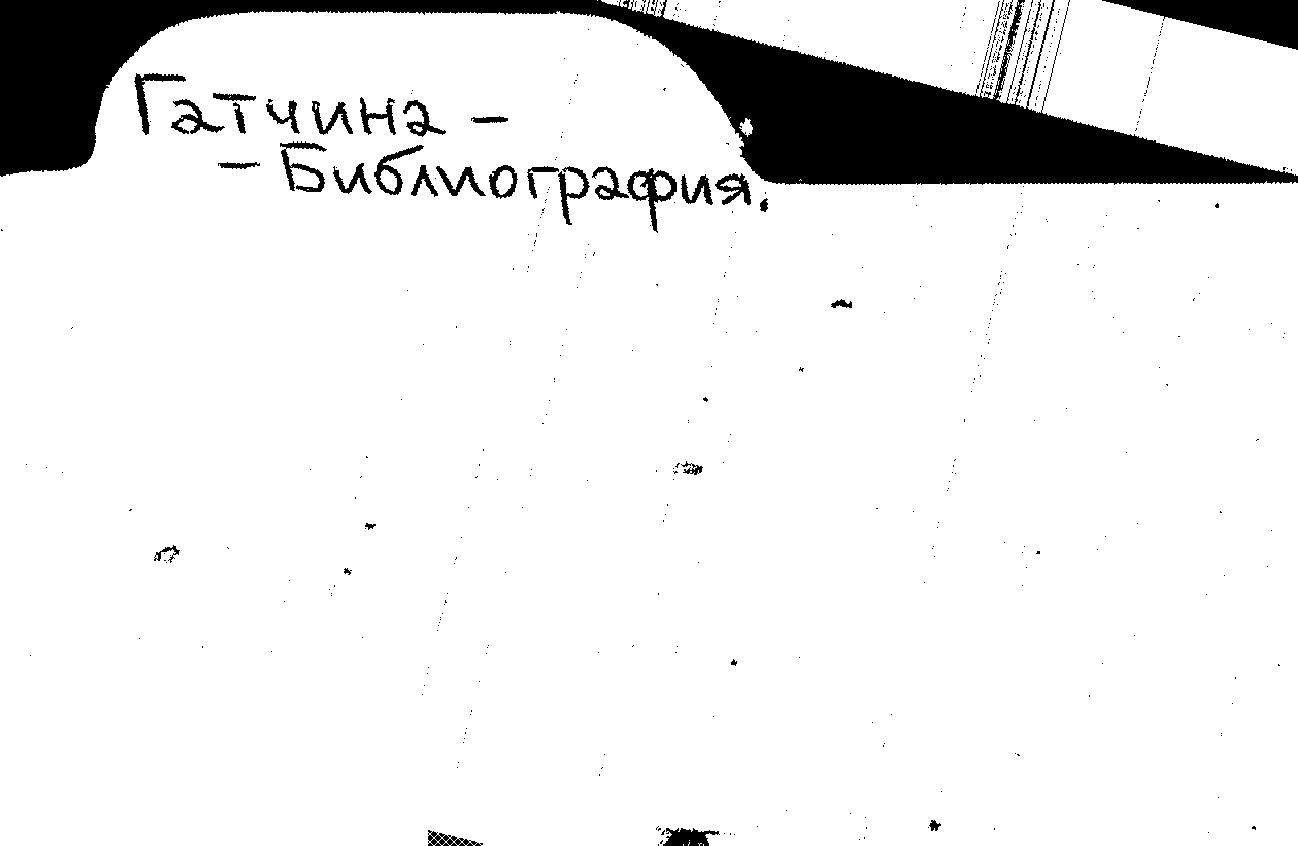 Гатчина –
– Библиография.